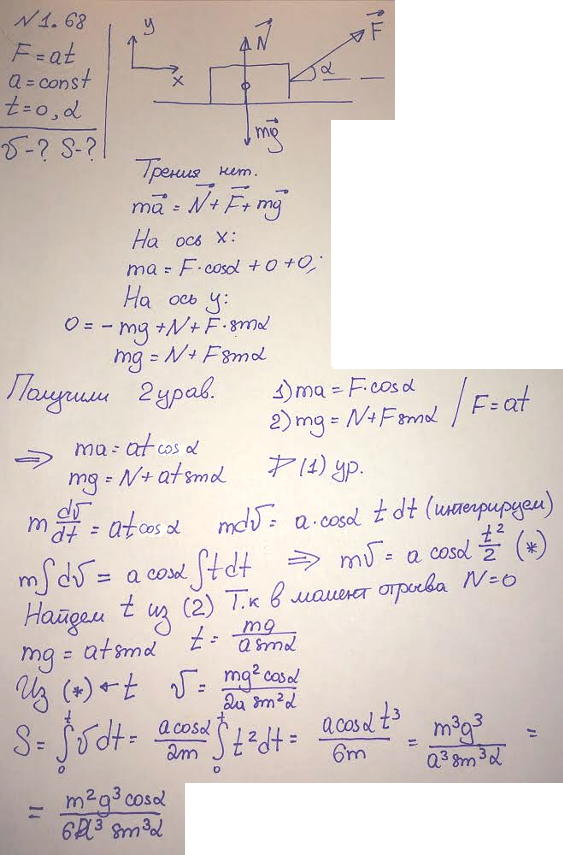 N1.68
F = at
a = const
t = 0, α
v - ? S - ?
y
x
N
F
α
mg
Трения нет.
ma = N + F + mg
На ось x:
ma = F·cosα + 0 + 0;
На ось y:
0 = -mg + N + F·sinα
mg = N + F sinα
Получили 2 урав.
1) ma = F·cosα
2) mg = N + F sinα / F = at
⇒ ma = at cosα
mg = N + at sinα
(1) ур.
m dv/dt = at cosα mdv = a·cosα t dt (интегрируем)
m∫dv = a cosα ∫t dt ⇒ mv = a cosα t²/2 (*)
Найдем t из (2) Т.к в момент отрыва N = 0
mg = at sinα t = mg/(a sinα)
Из (*) ← t v = mg² cosα/(2a sin²α)
S = ∫₀ᵗ v dt = a cosα/2m ∫₀ᵗ t² dt = a cosα t³/6m = m³g³/(a³ sin³α) =
= m²g³ cosα/(6a³ sin³α)